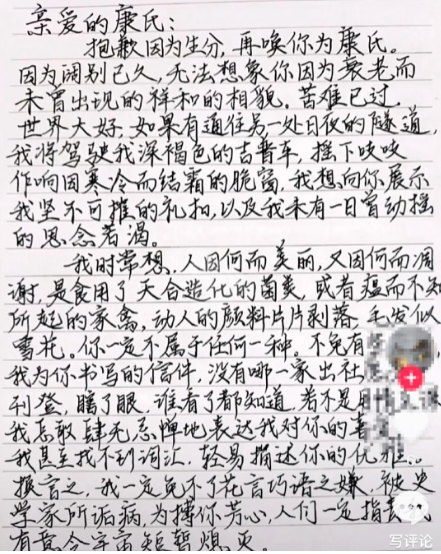 亲爱的康氏：
抱歉因为生分，再唤你为康氏。
因为阔别已久，无法想象你因为衰老而
未曾出现的祥和的相貌。苦难已过，
世界大好，如果有通往另一处日夜的隧道，
我将驾驶我深褐色的吉普车，摇下吱吱
作响因寒冷而结霜的脆窗，我想向你展示
我坚不可摧的礼拍，以及我未有一日盲动摇
的思念若渴。
我时常想，人因何而美丽，又因何而凋
谢，是食用了天合造化的菌类，或者瘟而不知
所起的家禽，动人的颜料片片剥落，毛发似
雪花。你一定不属于任何一种。不免有
我为你书写的信件，没有哪一家出社
刊登，瞎了眼，谁看了都知道，若不是
我怎敢肆无忌惮地表达我对你的喜
我甚至找不到词汇，轻易描述你的优雅。
换言之，我一定免不了花言巧语之嫌，被史
学家所诟病为搏你芳心，人们一定指
有意令宇宙短暂熄灭
写评论